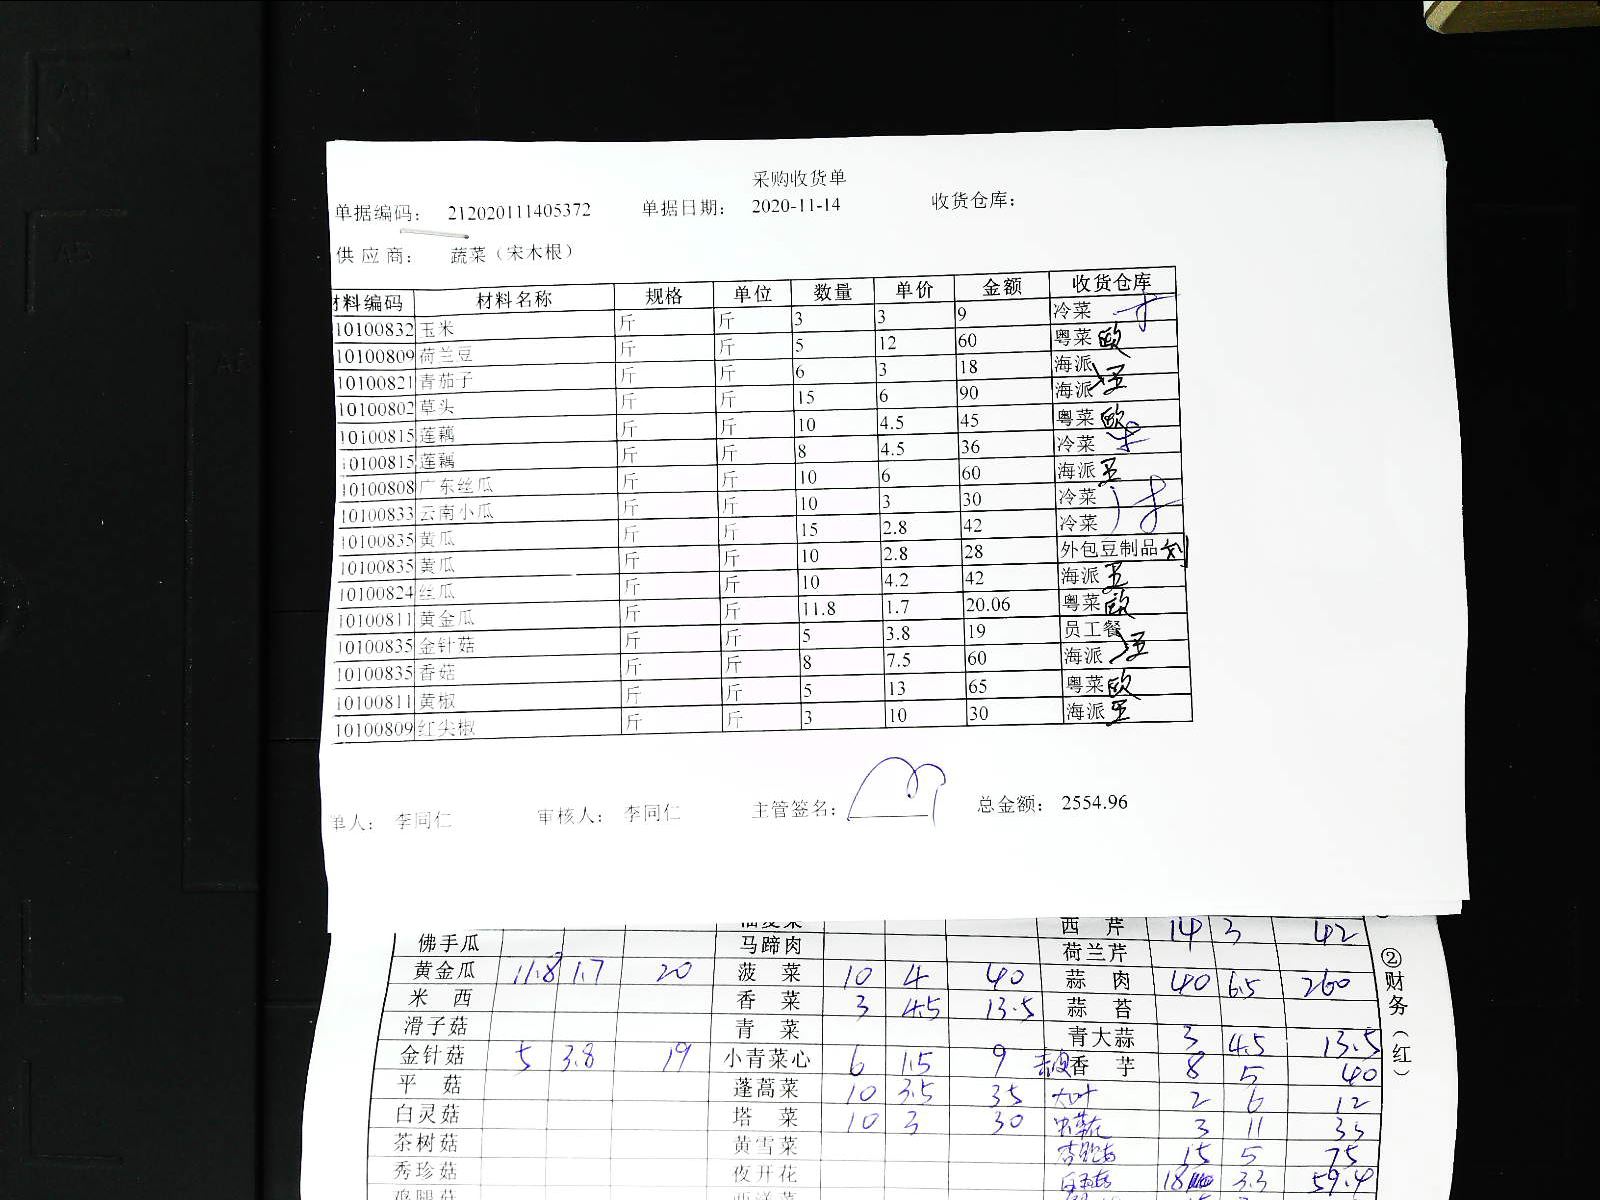 采购收货单
单据编码： 212020111405372 单据日期： 2020-11-14 收货仓库：
供应商： 蔬菜（宋木根）
材料编码 材料名称 规格 单位 数量 单价 金额 收货仓库
10100832 玉米 斤 斤 3 3 9 冷菜
10100809 荷兰豆 斤 斤 5 12 60 粤菜 欧
10100821 青茄子 斤 斤 6 3 18 海派
10100802 草头 斤 斤 15 6 90 海派 王
10100815 莲藕 斤 斤 10 4.5 45 粤菜 欧
10100815 莲藕 斤 斤 8 4.5 36 冷菜
10100808 广东丝瓜 斤 斤 10 6 60 海派 王
10100833 云南小瓜 斤 斤 10 3 30 冷菜
10100835 黄瓜 斤 斤 15 2.8 42 冷菜
10100835 黄瓜 斤 斤 10 2.8 28 外包豆制品
10100824 丝瓜 斤 斤 10 4.2 42 海派 王
10100811 黄金瓜 斤 斤 11.8 1.7 20.06 粤菜 欧
10100835 金针菇 斤 斤 5 3.8 19 员工餐
10100835 香菇 斤 斤 8 7.5 60 海派 王
10100811 黄椒 斤 斤 5 13 65 粤菜 欧
10100809 红尖椒 斤 斤 3 10 30 海派 王
单人： 李同仁 审核人： 李同仁 主管签名： 总金额： 2554.96
西芹 14 3 42
佛手瓜 马蹄肉 荷兰芹
黄金瓜 11.8 1.7 20 菠菜 10 4 40 蒜肉 40 6.5 260
米西 香菜 3 4.5 13.5 蒜苔
滑子菇 青菜 青大蒜 3 4.5 13.5
金针菇 5 3.8 19 小青菜心 6 1.5 9 去皮香芋 8 5 40
平菇 蓬蒿菜 10 3.5 35 大叶 2 6 12
白灵菇 塔菜 10 3 30 3 11 33
茶树菇 黄雪菜 15 5 75
秀珍菇 夜开花 18 3.3 59.4
鸡腿菇 西洋菜
②财务（红）